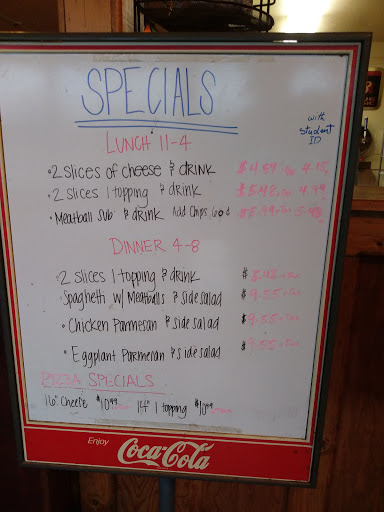 SPECIALS
with
student
ID
LUNCH 11-4
• 2 slices of cheese & drink $4.59 + tax 4.15
• 2 slices 1 topping & drink $5.48 + tax 4.99
• Meatball Sub & drink Add Chips 60¢ $5.99 + tax
DINNER 4-8
• 2 slices 1 topping & drink $5.48 + tax
• Spaghetti w/ Meatballs & side salad $9.55 + tax
• Chicken Parmesan & side salad $9.55 + tax
• Eggplant Parmesan & side salad 9.55 + tax
PIZZA SPECIALS
16" Cheese $10.99 14" 1 topping $10.99
Enjoy Coca-Cola